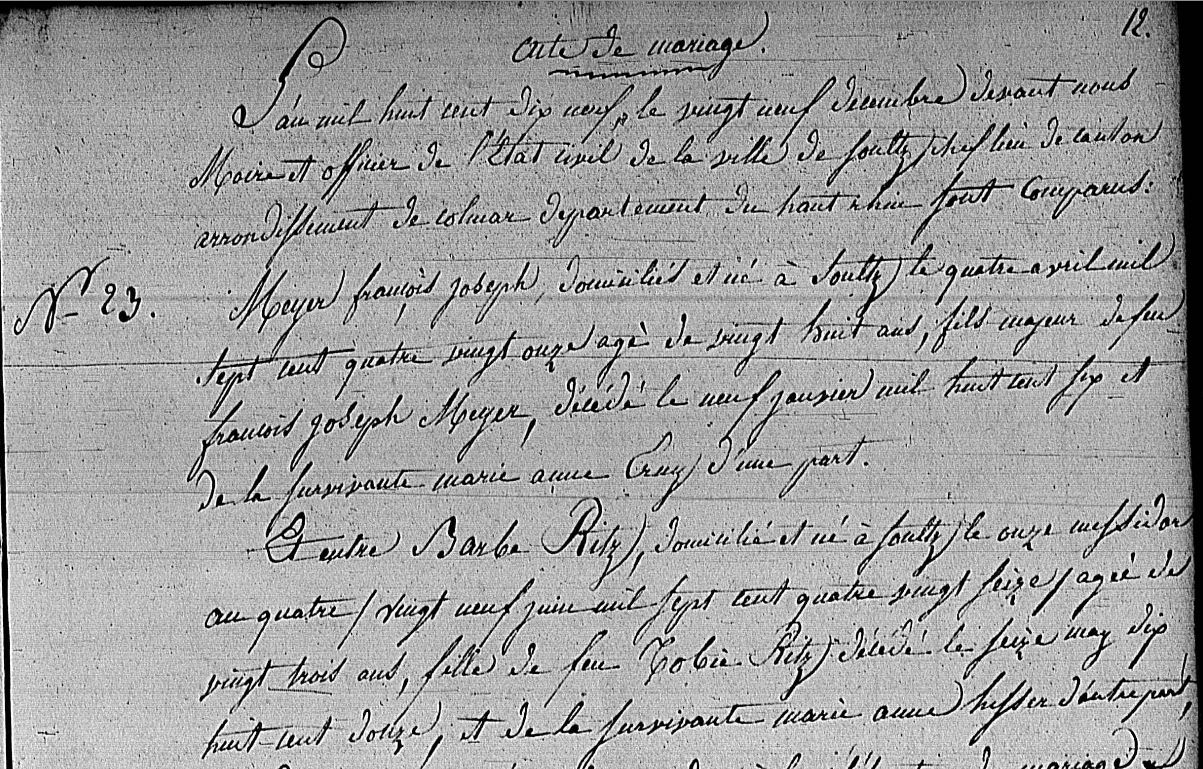 12.
Acte de mariage.
L'an mil huit cent dix neuf, le vingt neuf décembre devant nous
Maire et officier de l'État civil de la ville de Soultz chef lieu de canton
arrondissement de colmar département du haut rhin sont Comparus:
N° 23.
Meyer françois joseph, domiciliés et né à Soultz le quatre avril mil
sept cent quatre vingt onze agé de vingt huit ans, fils majeur de feu
francois joseph Meyer, décédé le neuf janvier mil huit cent six et
de la survivante marie anne Erny d'une part.
Et entre Barbe Ritz, domicilié et né à Soultz le onze messidor
an quatre / vingt neuf juin mil sept cent quatre vingt seize / agée de
vingt trois ans, fille de feu Tobie Ritz décédé le seize may dix
huit cent douze, et de la survivante marie anne hisser d'autre part,
de mariage